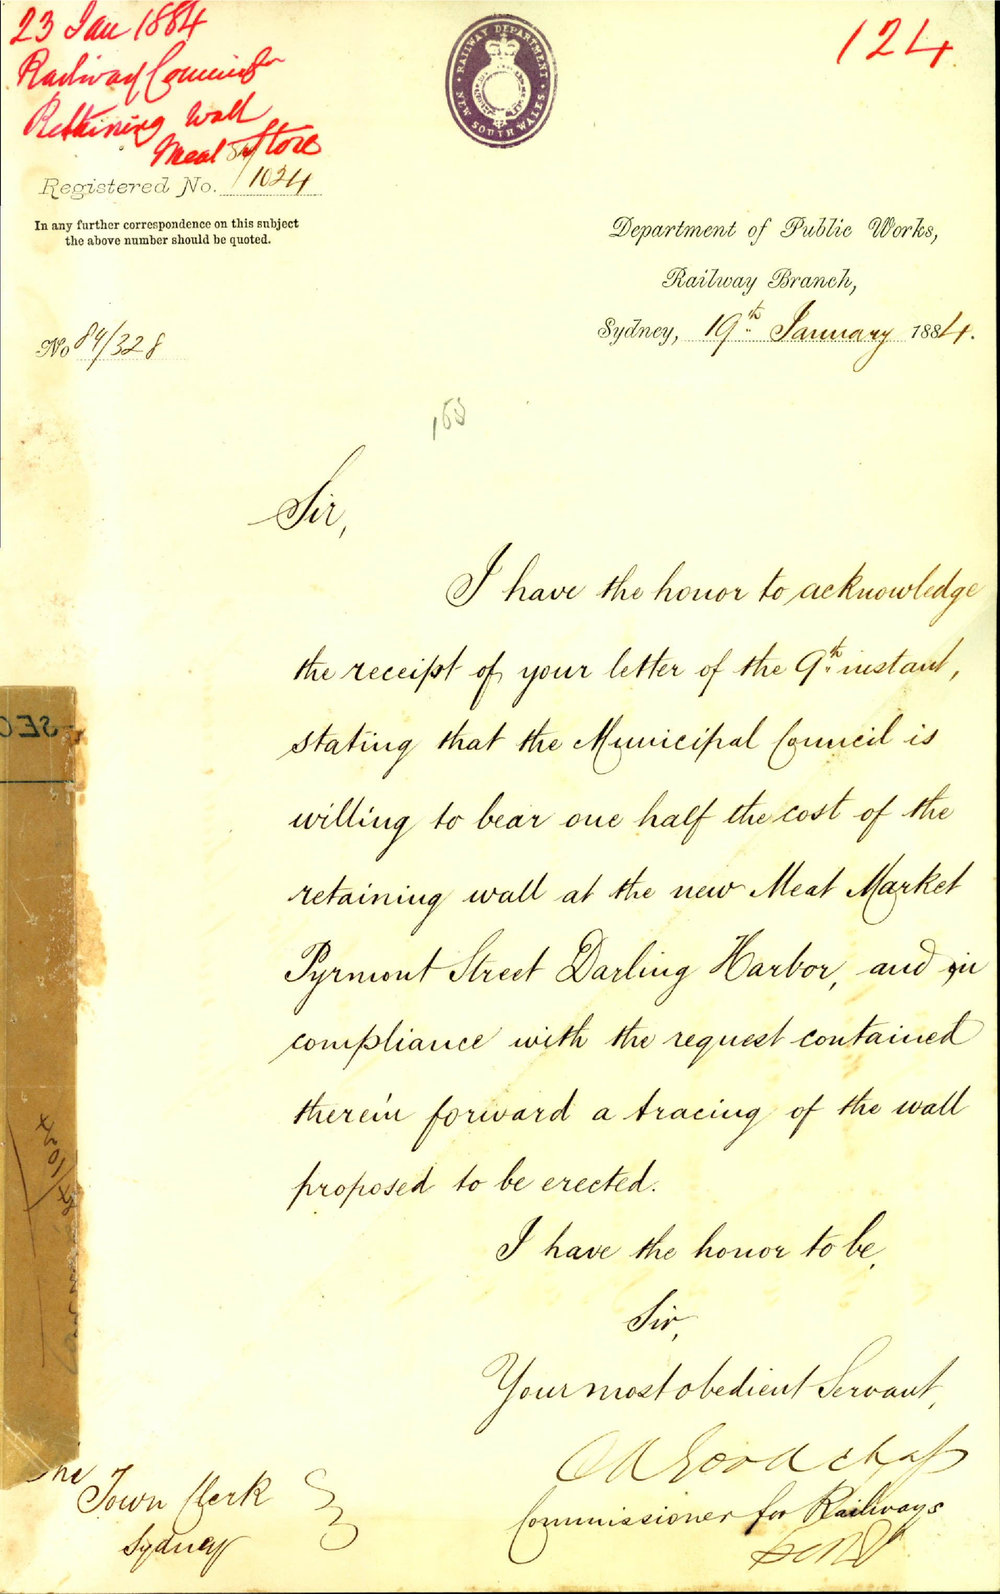 23 Jan 1884
124
Railway Commissr
Retaining Wall
Meat Store
RAILWAY DEPARTMENT
NEW SOUTH WALES
Registered No. 84/1024
In any further correspondence on this subject
the above number should be quoted.
Department of Public Works,
Railway Branch,
Sydney, 19th January 1884.
No 84/328
Sir,
I have the honor to acknowledge
the receipt of your letter of the 9th instant,
stating that the Municipal Council is
willing to bear one half the cost of the
retaining wall at the new Meat Market
Pyrmont Street Darling Harbor, and in
compliance with the request contained
therein forward a tracing of the wall
proposed to be erected.
I have the honor to be,
Sir,
Your most obedient Servant,
Goodchap
Commissioner for Railways
The
Town Clerk
Sydney